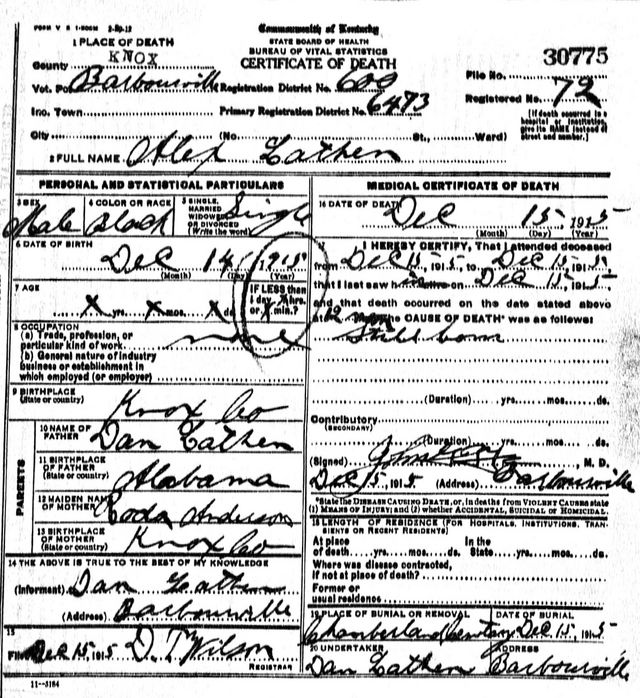 FORM V S 1-
Commonwealth of Kentucky
STATE BOARD OF HEALTH
BUREAU OF VITAL STATISTICS
CERTIFICATE OF DEATH
1 PLACE OF DEATH
County KNOX
File No. 30775
Vot. Barbourville Registration District No. 600
Registered No. 72
Inc. Town Primary Registration District No. 6473
[If death occurred in a hospital or institution, give its NAME instead of street and number.]
City (No. St., Ward)
2 FULL NAME Alex Cathen
PERSONAL AND STATISTICAL PARTICULARS
3 SEX Male
4 COLOR OR RACE Black
5 SINGLE, MARRIED WIDOWED OR DIVORCED (Write the word) Single
6 DATE OF BIRTH
Dec 14, 1915
(Month) (Day) (Year)
7 AGE
X yrs. X mos. X ds.
IF LESS than 1 day, X hrs. or X min.?
8 OCCUPATION
(a) Trade, profession, or particular kind of work none
(b) General nature of industry business or establishment in which employed (or employer)
9 BIRTHPLACE
(State or country) Knox Co
PARENTS
10 NAME OF FATHER Dan Cathen
11 BIRTHPLACE OF FATHER (State or country) Alabama
12 MAIDEN NAME OF MOTHER Roda Anderson
13 BIRTHPLACE OF MOTHER (State or country) Knox Co
14 THE ABOVE IS TRUE TO THE BEST OF MY KNOWLEDGE
(Informant) Dan Cathen
(Address) Barbourville
15
Filed Dec 15, 1915 D. T. Wilson
REGISTRAR
11--3184
MEDICAL CERTIFICATE OF DEATH
16 DATE OF DEATH
Dec 15, 1915
(Month) (Day) (Year)
I HEREBY CERTIFY, That I attended deceased
from Dec 15, 1915, to Dec 15, 1915
that I last saw alive on Dec 15, 1915,
and that death occurred on the date stated above
at the CAUSE OF DEATH* was as follows:
Still born
(Duration) yrs. mos. ds.
Contributory
(SECONDARY)
(Duration) yrs. mos. ds.
(Signed) M. D.
Dec 15, 1915 (Address) Barbourville
*State the DISEASE CAUSING DEATH, or, in deaths from VIOLENT CAUSES state
(1) MEANS OF INJURY; and (2) whether ACCIDENTAL, SUICIDAL OR HOMICIDAL.
18 LENGTH OF RESIDENCE (FOR HOSPITALS, INSTITUTIONS, TRANSIENTS OR RECENT RESIDENTS)
At place of death yrs. mos. ds. In the State yrs. mos. ds.
Where was disease contracted, If not at place of death?
Former or usual residence
19 PLACE OF BURIAL OR REMOVAL
DATE OF BURIAL
Dec 15, 1915
20 UNDERTAKER
ADDRESS
Dan Cathen Barbourville